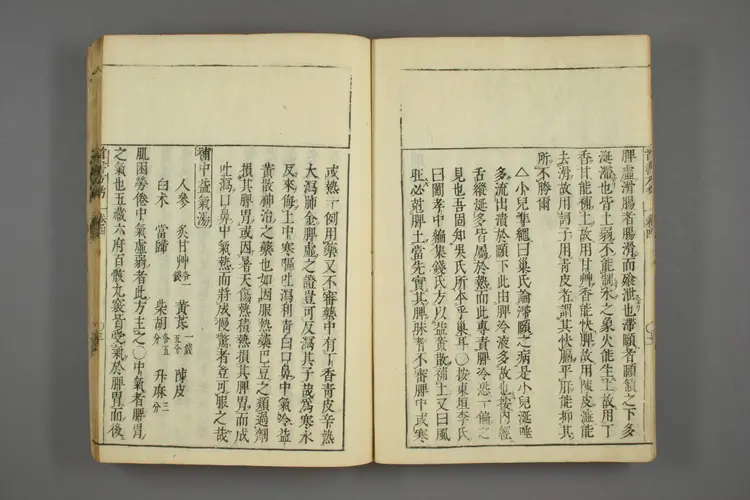 脾虛滑腸者腸滑而飧泄也滯頤者頤頷之下多
涎滯也皆土弱不能制水之象火能生土故用丁
香甘能補土故用甘艸香能快脾故用陳皮澁能
去滑故用訶子用青皮者謂其快膈平肝能抑其
所不勝爾
△小兒準繩曰巢氏論滯頤之病是小兒涎唾
多流出漬於頤下此由脾冷液多故也按內經
舌縱涎多皆屬於熱而此專責脾冷恐一偏之
見也吾固知吳氏所本乎巢耳〇按東垣李氏
曰閻孝中編集錢氏方以益黃散補土又曰風
旺必尅脾土當先實其脾昧者不審脾中或寒
或熱一例用藥又不審藥中有丁香青皮辛熱
大瀉肺金脾虛之證豈可反瀉其子哉爲寒水
反來侮土中寒嘔吐瀉利青白口鼻中氣冷益
黃散神治之藥也如因服熱藥巴豆之類過劑
損其脾胃或因暑天傷熱積熱損其脾胃而成
吐瀉口鼻中氣熱而將成慢驚者豈可服之哉
補中益氣湯
人參 炙甘艸各一錢 黃芪一錢五分 陳皮
白朮 當歸 柴胡各五分 升麻三分
肌困勞倦中氣虛弱者此方主之〇中氣者脾胃
之氣也五藏六府百骸九竅皆受氣於脾胃而後